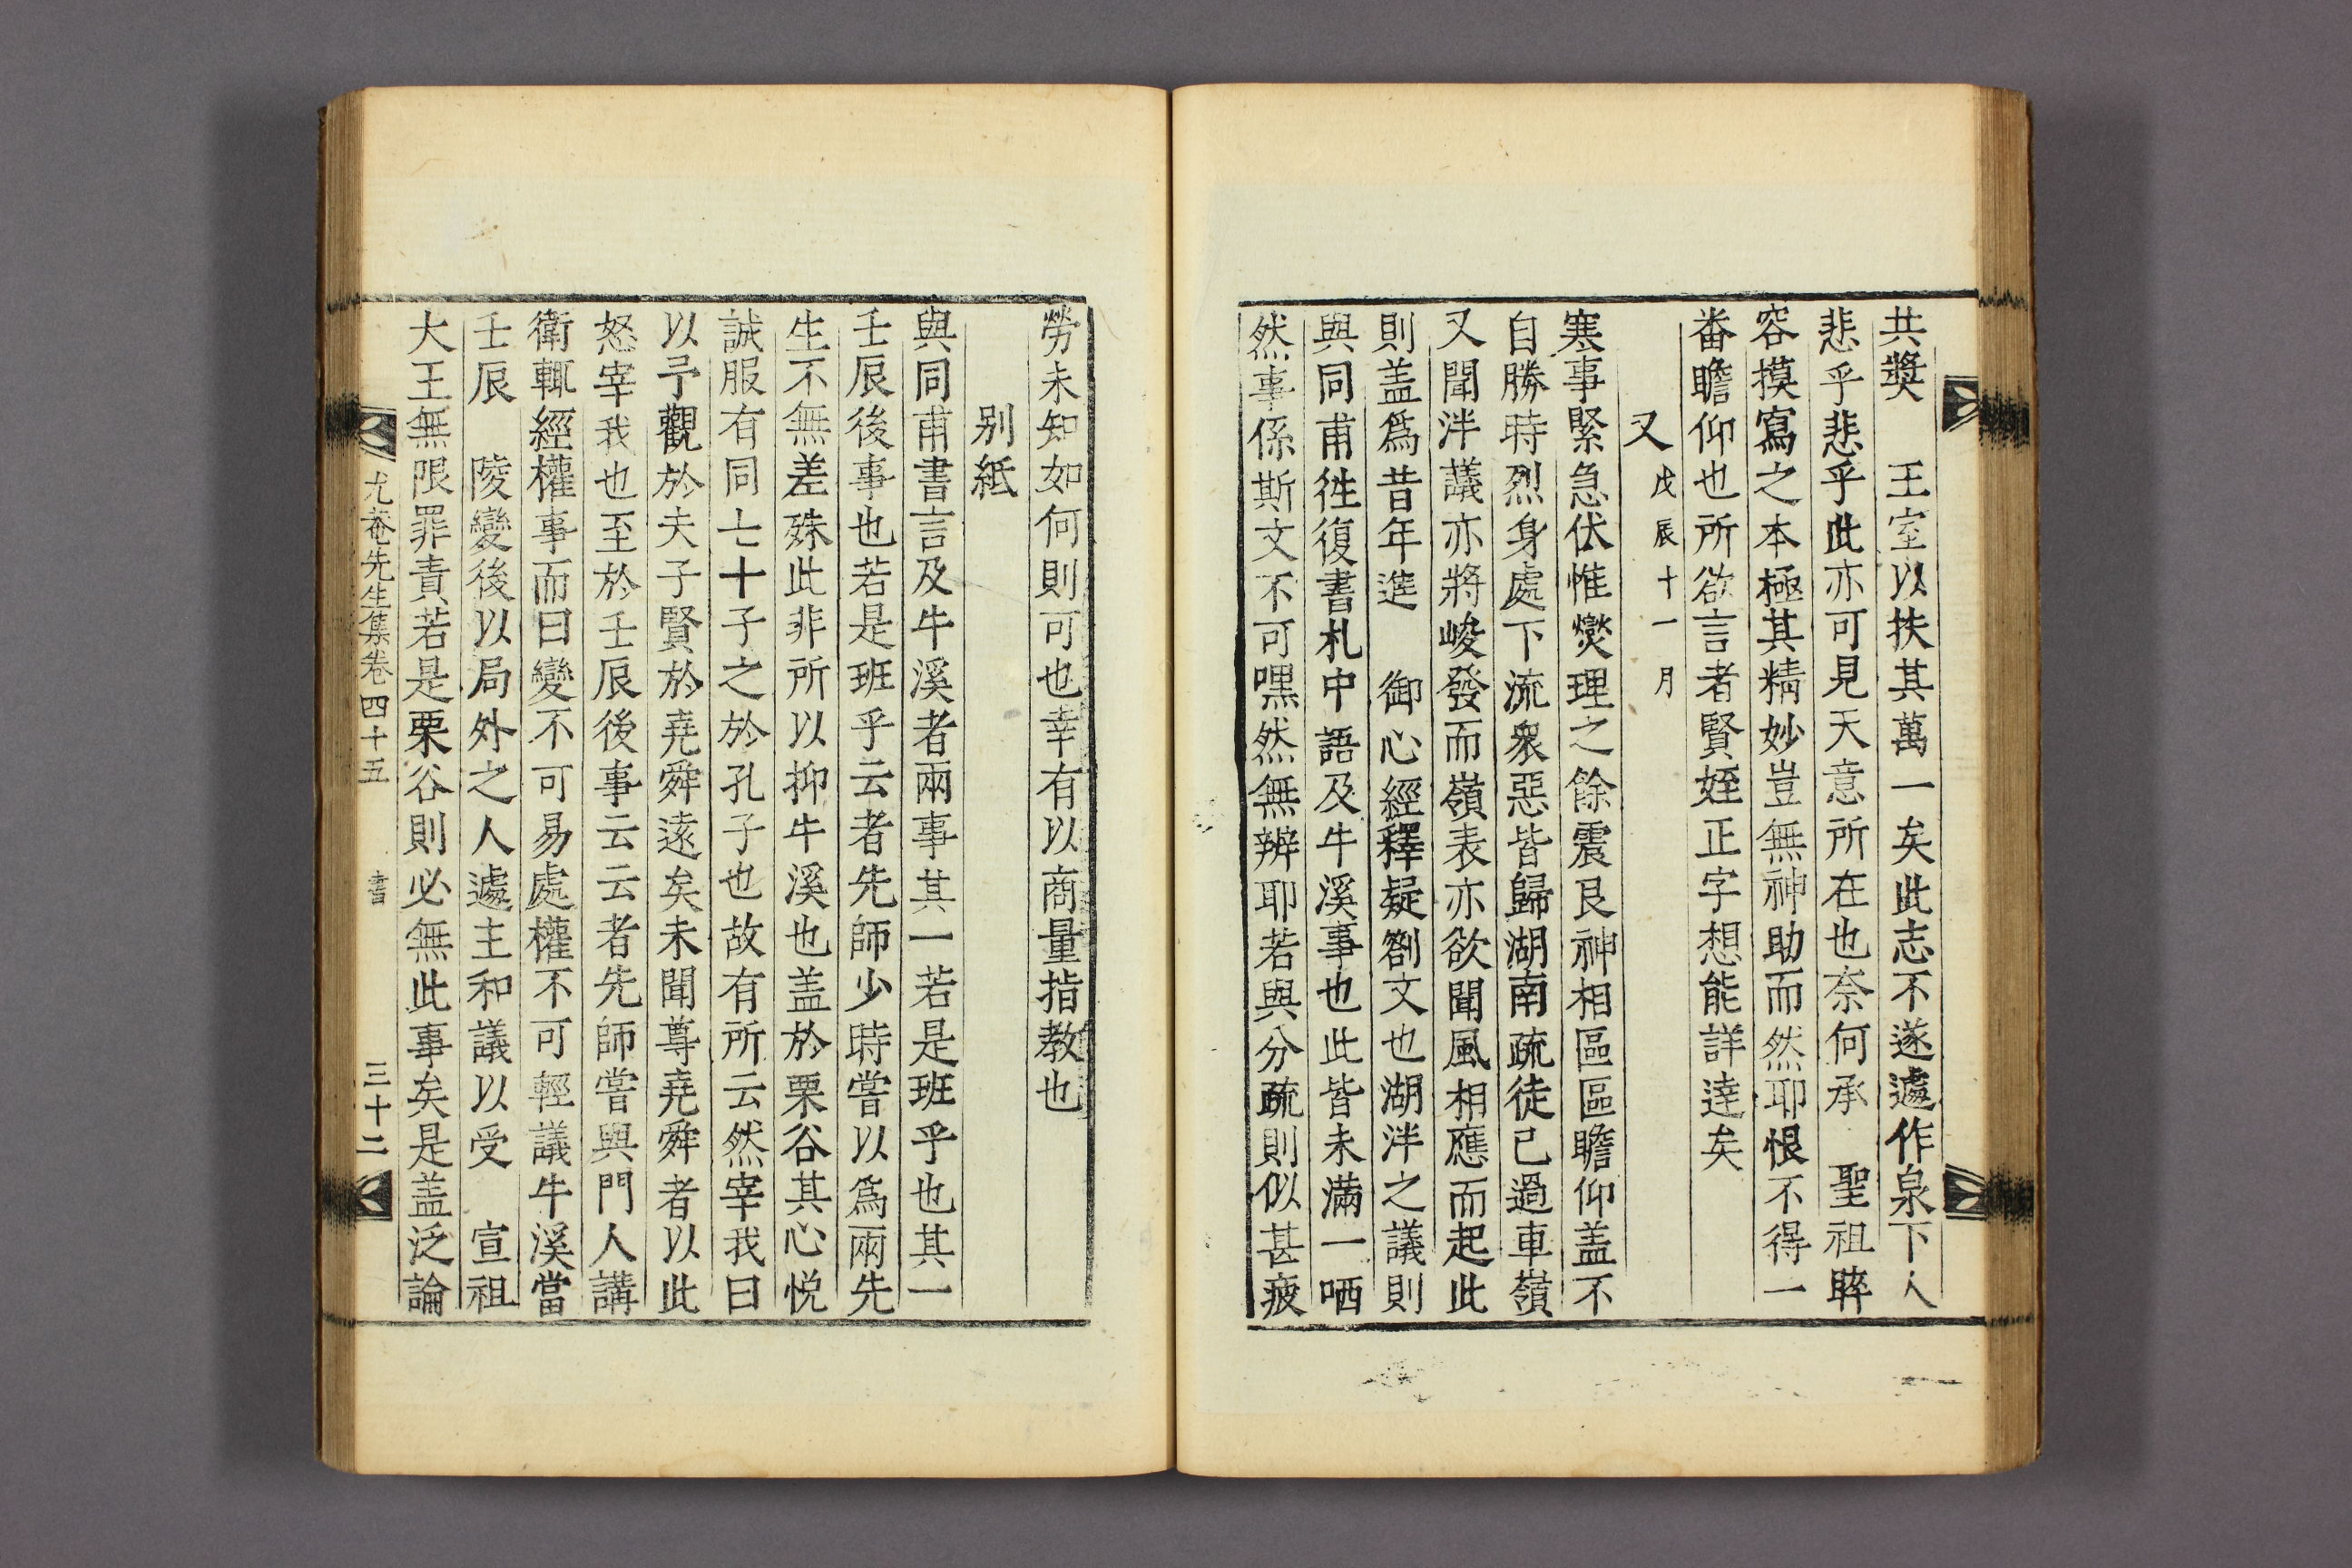 共奬　王室以扶其萬一矣此志不遂遽作泉下人
悲乎悲乎此亦可見天意所在也奈何承　聖祖睟
容摸寫之本極其精妙豈無神助而然耶恨不得一
番瞻仰也所欲言者賢姪正字想能詳達矣
又 戊辰十一月
寒事緊急伏惟爕理之餘震艮神相區區瞻仰盖不
自勝時烈身處下流衆惡皆歸湖南疏徒已過車嶺
又聞泮議亦將峻發而嶺表亦欲聞風相應而起此
則盖爲昔年進　御心經釋疑劄文也湖泮之議則
與同甫徃復書札中語及牛溪事也此皆未滿一哂
然事係斯文不可嘿然無辨耶若與分疏則似甚疲
勞未知如何則可也幸有以商量指教也
别紙
與同甫書言及牛溪者兩事其一若是班乎也其一
壬辰後事也若是班乎云者先師少時嘗以爲兩先
生不無差殊此非所以抑牛溪也盖於栗谷其心悦
誠服有同七十子之於孔子也故有所云然宰我曰
以予觀於夫子賢於堯舜遠矣未聞尊堯舜者以此
怒宰我也至於壬辰後事云云者先師嘗與門人講
衛輒經權事而曰變不可易處權不可輕議牛溪當
壬辰　陵變後以局外之人遽主和議以受　宣祖
大王無限罪責若是栗谷則必無此事矣是盖泛論
尤菴先生集卷四十五　書　三十二